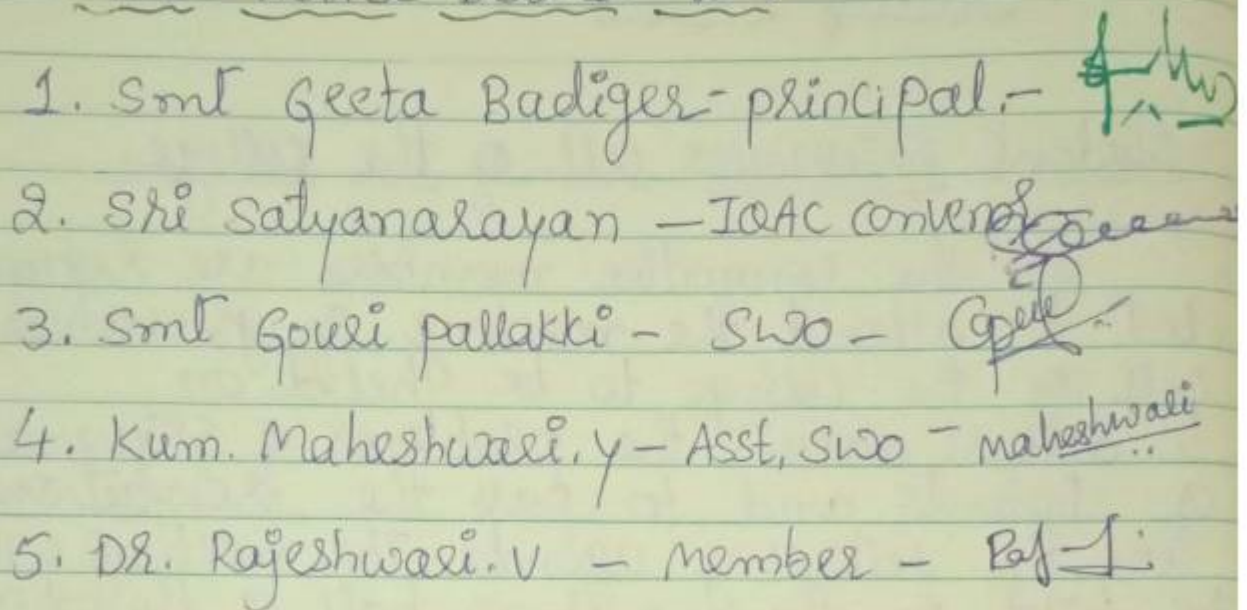 1. Smt Geeta Badiger - principal. -
2. Sri Satyanarayan - IQAC convenor
3. Smt Gouri pallakki - SWO -
4. Kum. Maheshwari. Y - Asst, SWO - maheshwari
5. DR. Rajeshwari. V - member -